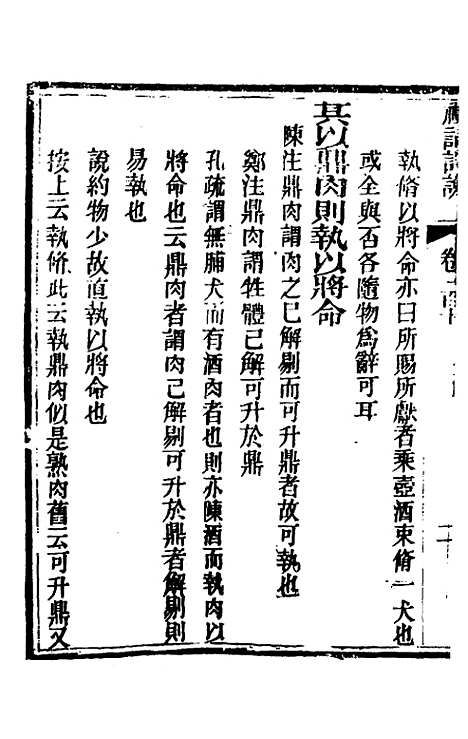 執脩以將命亦曰所賜所獻者乘壺酒束脩一犬也
或全與否各隨物爲辭可耳
其以鼎肉則執以將命
陳注鼎肉謂肉之已解剔而可升鼎者故可執也
鄭注鼎肉謂牲體已解可升於鼎
孔疏謂無脯犬而有酒肉者也則亦陳酒而執肉以
將命也云鼎肉者謂肉已解剔可升於鼎者解剔則
易執也
說約物少故直執以將命也
按上云執脩此云執鼎肉似是熟肉舊云可升鼎又